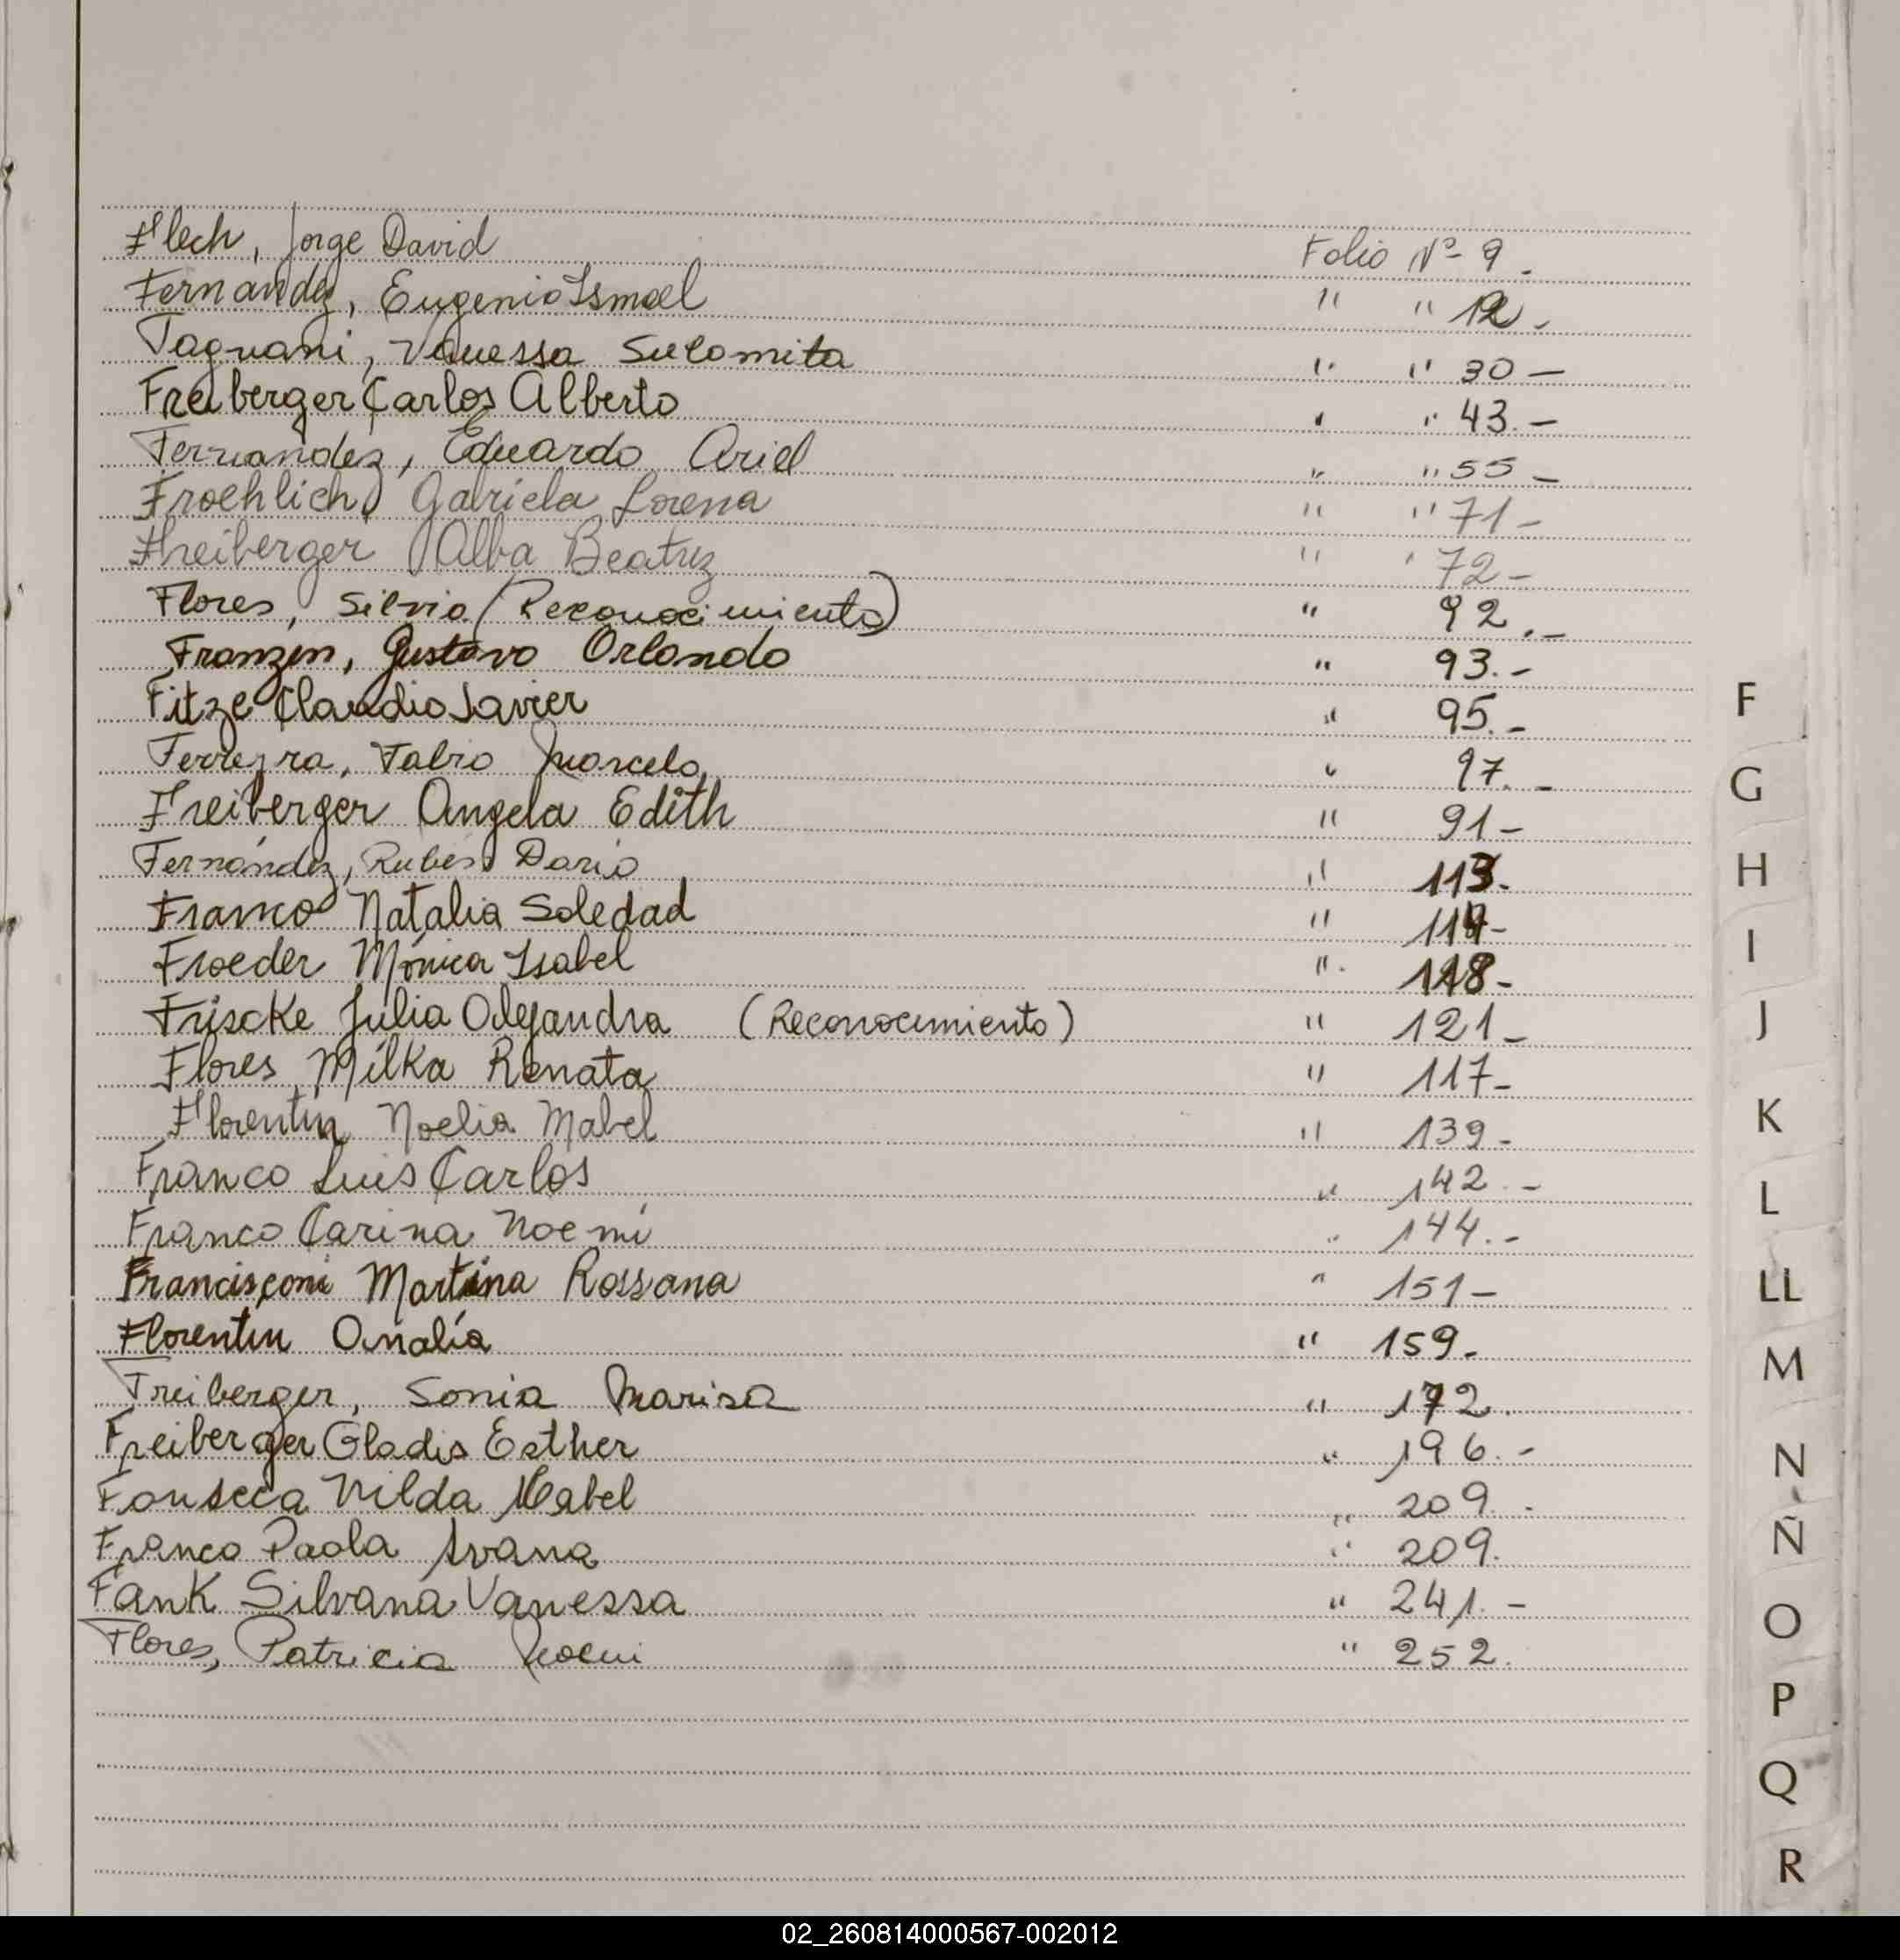 Flech, Jorge David Folio Nº 9.
Fernandez, Eugenio Ismael " " 12.-
Fagnani, Vanessa Sulomita " " 30-
Freiberger Carlos Alberto " " 43.-
Fernandez, Eduardo Ariel " " 55-
Froehlich, Gabriela Lorena " " 71-
Freiberger Alba Beatriz " " 72-
Flores, Silvio (Reconocimiento) " 92.-
Franzen, Gustavo Orlando " 93.-
Fitze Claudio Javier " 95.-
Ferreyra, Fabio Marcelo " 97.-
Freiberger Angela Edith " 91-
Fernández, Rubén Dario " 113.
Franco Natalia Soledad " 114-
Froeder Mónica Isabel " 118-
Friscke Julia Alejandra (Reconocimiento) " 121-
Flores Milka Renata " 117-
Florentin Noelia Mabel " 139-
Franco Luis Carlos " 142.-
Franco Carina Noemí " 144.-
Francisconi Martina Rossana " 151-
Florentin Analía " 159-
Freiberger, Sonia Marisa " 172.
Freiberger Gladis Esther " 196.-
Fonseca Nilda Mabel " 209.-
Franco Paola Ivana " 209.
Fank Silvana Vanessa " 241.-
Flores, Patricia Noemi " 252.
F
G
H
I
J
K
L
LL
M
N
Ñ
O
P
Q
R
02_260814000567-002012